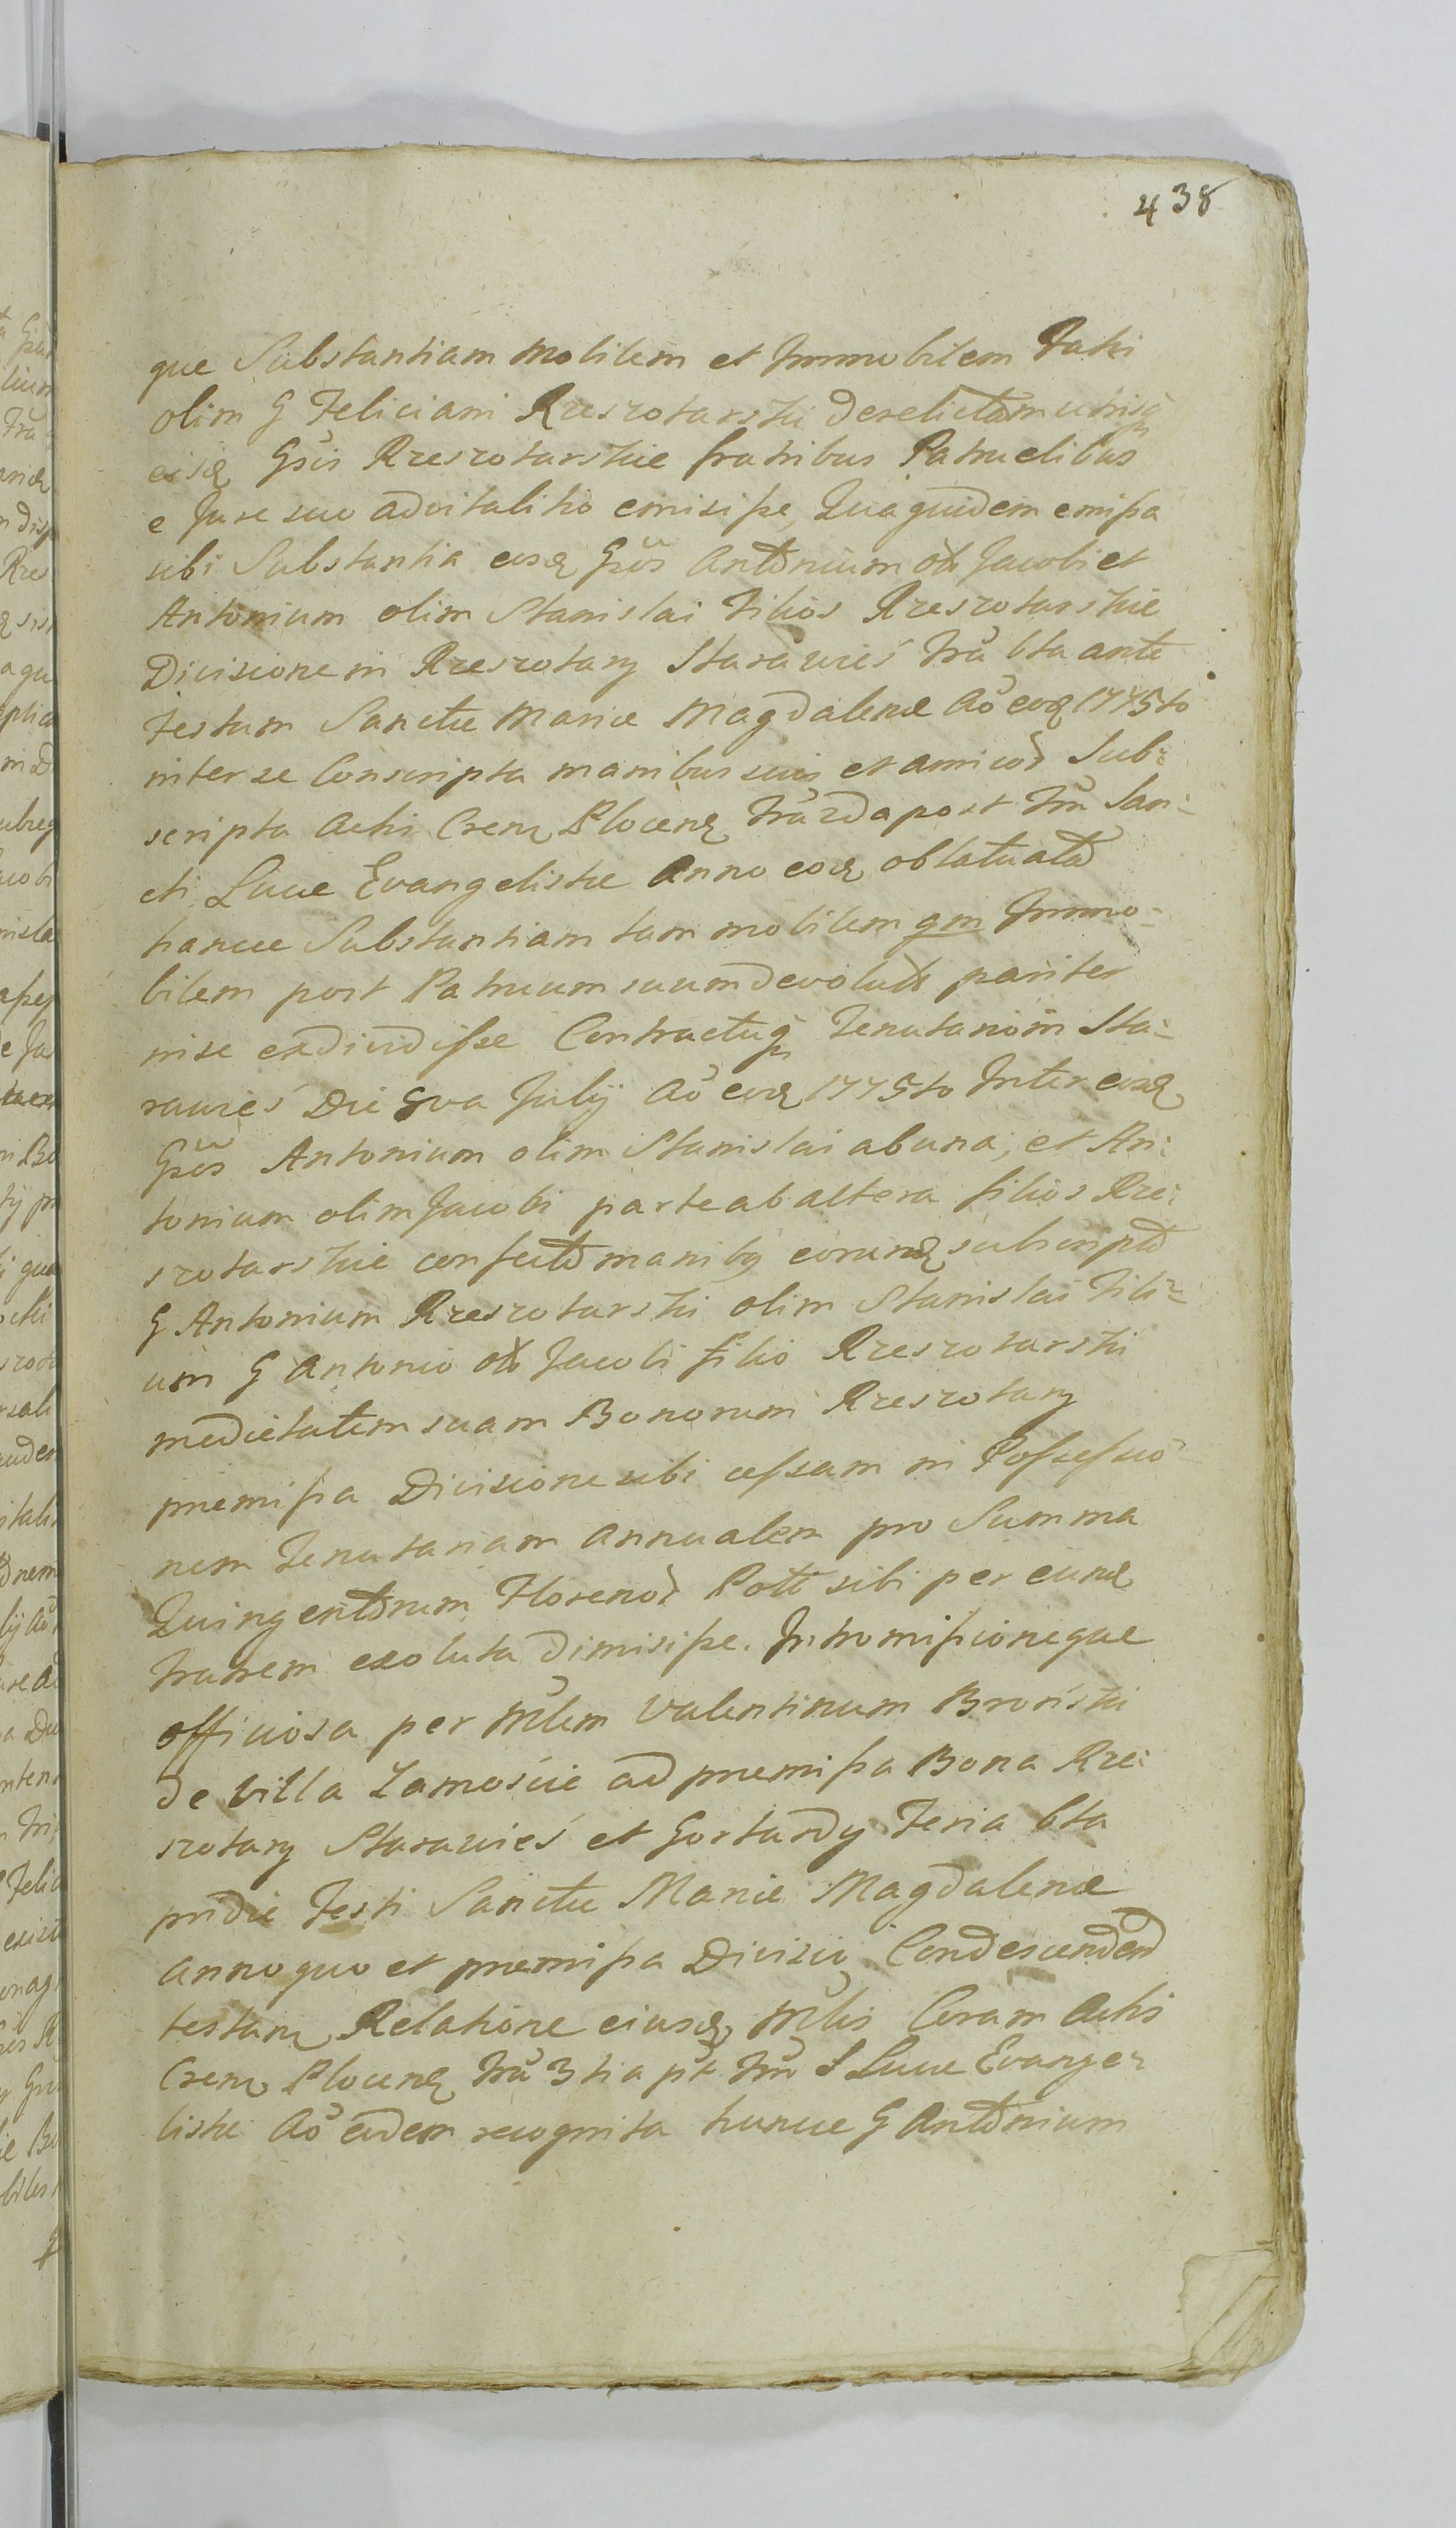 438
que Substantiam mobilem et Immobilem Fatri
olim G Feliciani Rzeszotarski derelictam utrisq
eisd Gsis Rzeszotarskie fratribus Patruelibus
e Jure suo advitalitio emisisse, Qua quidem emissa
sibi Substantia eosd Gsos Antonium ol Jacobi et
Antonium olim Stanislai Filios Rzeszotarskie
Divisione in Rzeszotary Stara wieś fra 6ta ante
Festum Sanctæ Mariæ Magdalenæ Ao eod 1775to
inter se Conscripta manibus suis et amicor Sub=
scripta Actis Cren Plocen fra 2da post fm San=
cti Lucæ Evangelistæ Anno eod oblatuata
hancce Substantiam tam mobilem qm Immo=
bilem post Patruum suum devolut pariter
inise exdivdisse Contractuq Tenutariom Sta=
rawieś Die 8va July Ao eod 1775to Inter eosd
Gsos Antonium olim Stanislai ab una, et An=
tonium olim Jacobi parte ab altera filios Rze=
szotarskie confecto manibq eorund subscripto
G Antonium Rzeszotarski olim Stanislai Fili=
um G Antonio ol Jacobi filio Rzeszotarski
medietatem suam Bonorum Rzeszotary
præmissa Divisione sibi cessam in Possessio=
nem Tenutariam annualem pro Summa
Quingentorum Florenor Poll sibi per eund
fratrem exoluta dimisisse. Intromissioneque
officiosa per Mlem Valentinum Broński
de Villa Zamoście ad præmissa Bona Rze=
szotary Stara wieś et Gortardy Feria 6ta
pridie Festi Sanctæ Mariæ Magdalenæ
anno quo et præmissa Divisio Condescenden
testan Relatione eiusd Mlis Coram Actis
Cren Plocen fra 3tia pt fm S Lucæ Evange=
listæ Ao eodem recognita huncce G Antonium